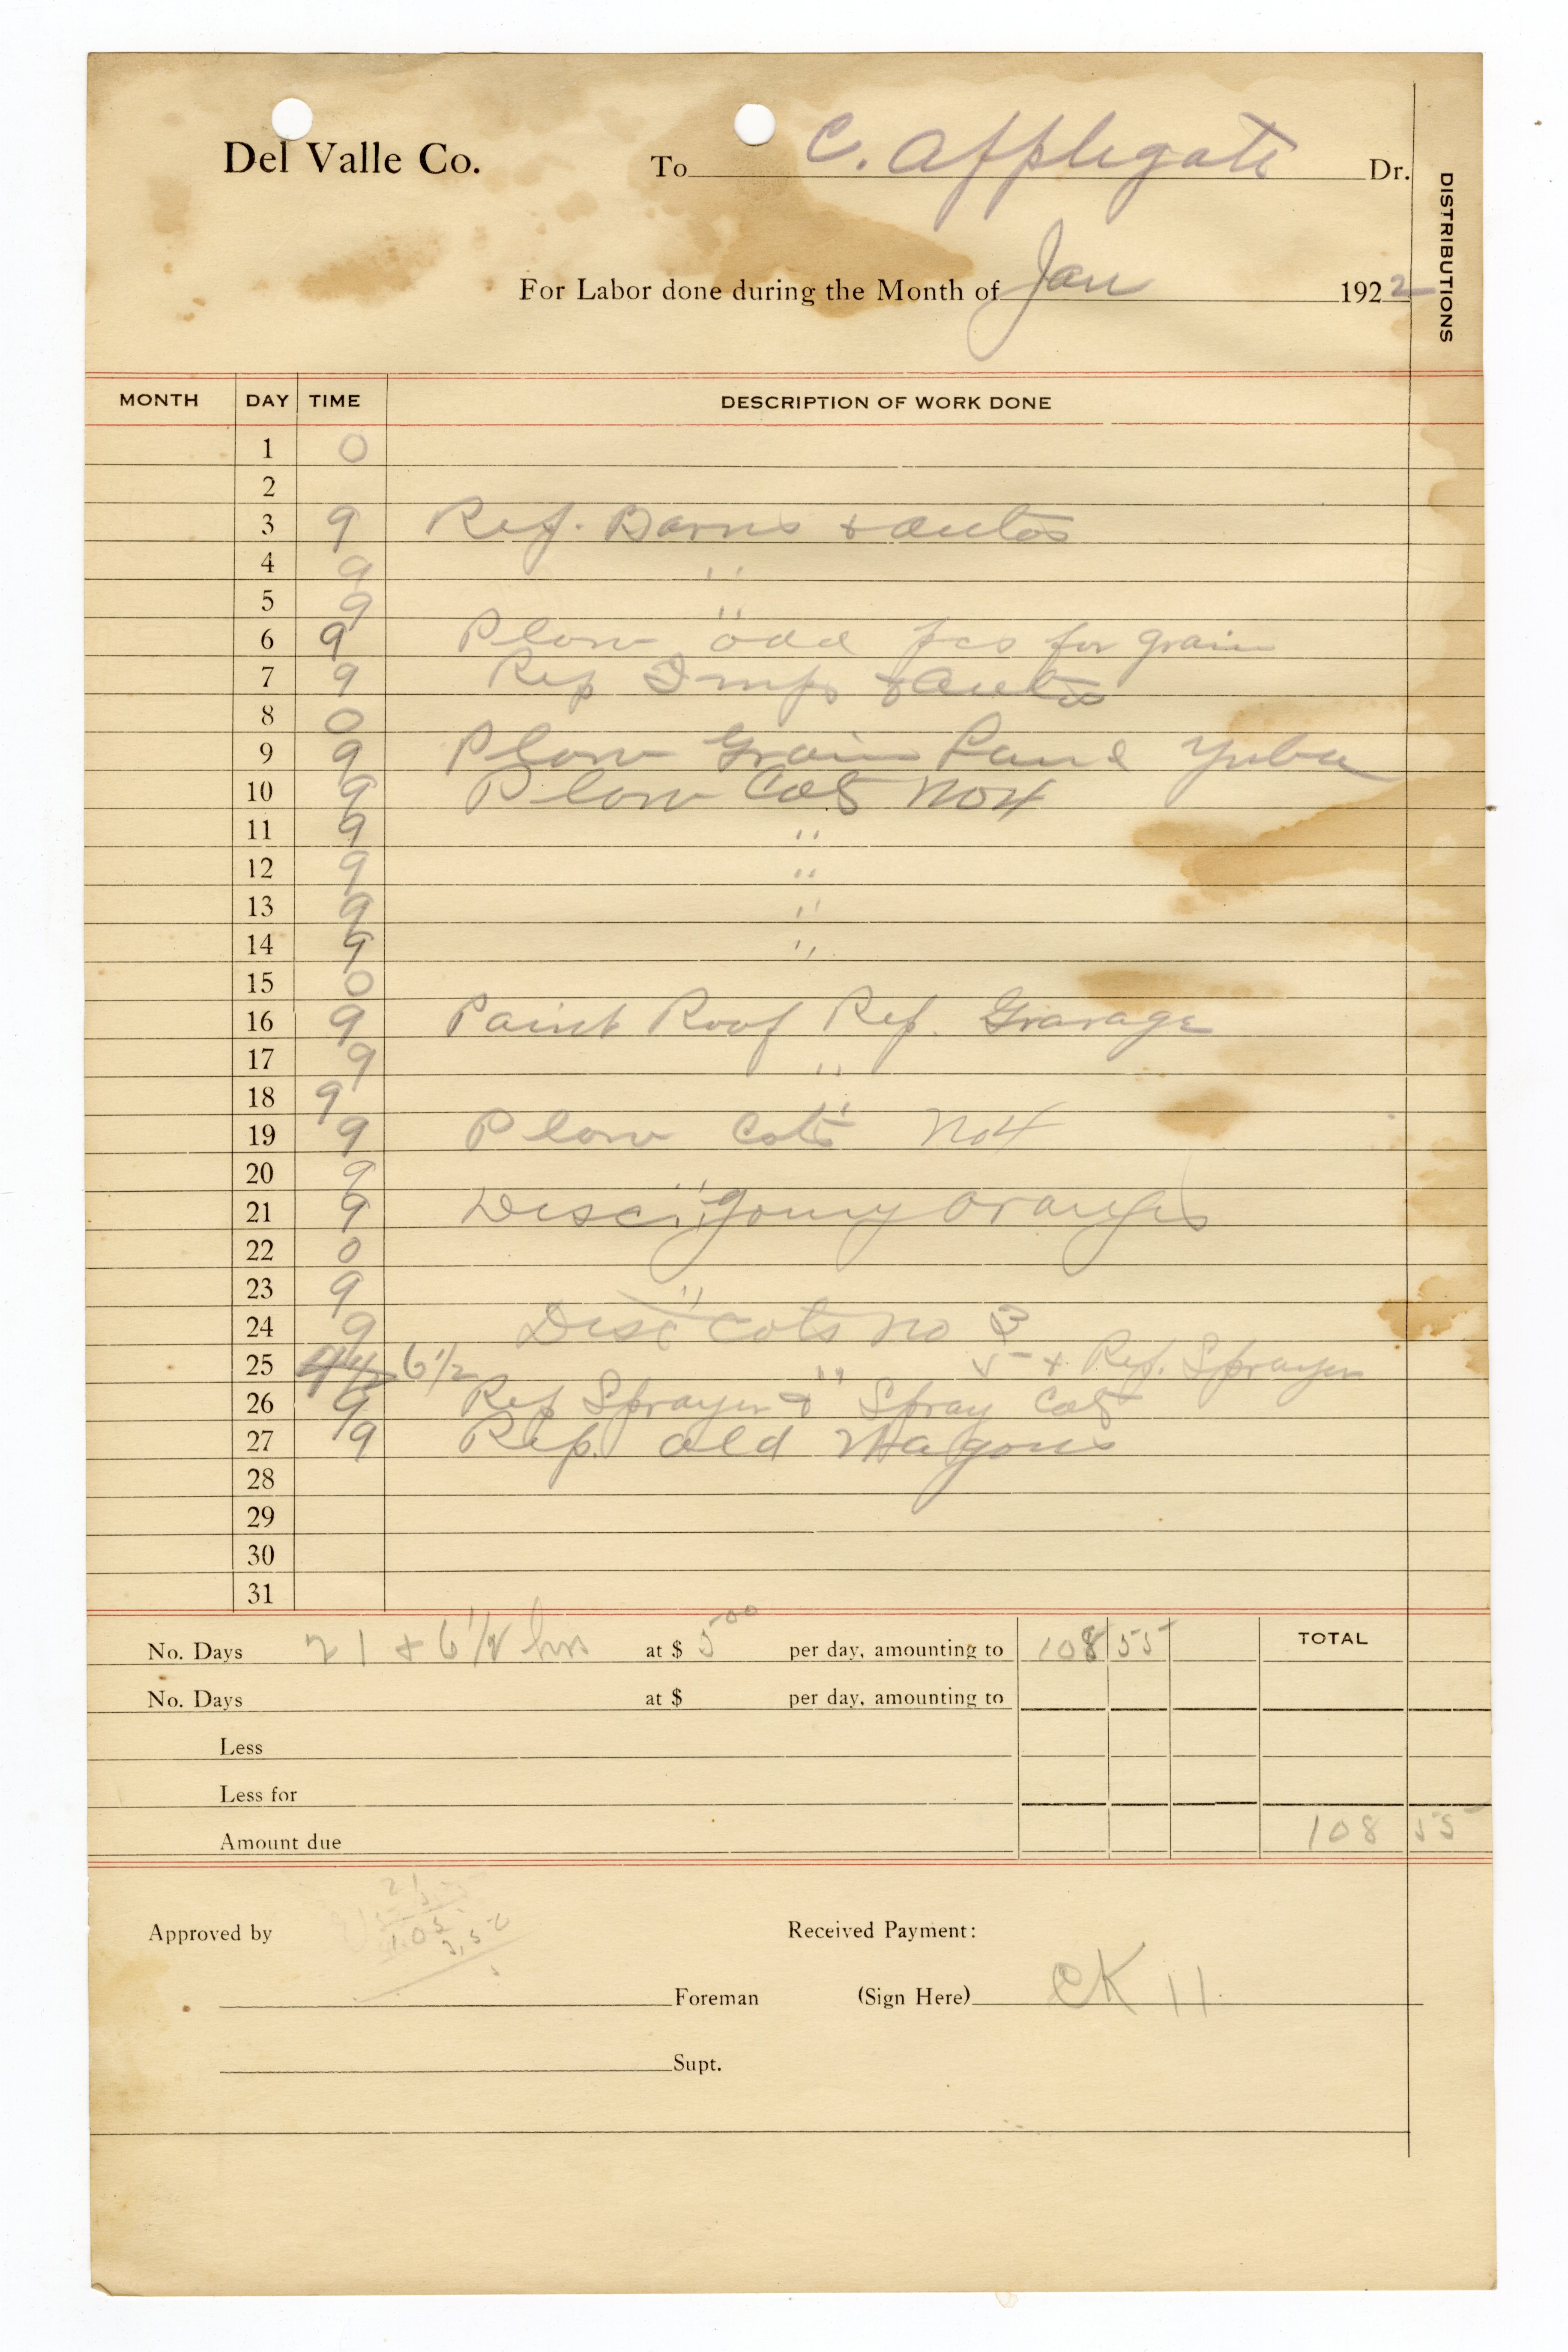 Del Valle Co. To C. Applegate Dr.
DISTRIBUTIONS
For Labor done during the Month of Jan 1922
MONTH DAY TIME DESCRIPTION OF WORK DONE
1 0
2
3 9 Rep. Barns & autos
4 9 "
5 9 "
6 9 Plow odd pcs for grain
7 9 Rep Imps & autos
8 0
9 9 Plow Grain Land Yuba
10 9 Plow Cots No 4
11 9 "
12 9 "
13 9 "
14 9 "
15 0
16 9 Paint Roof Rep. Gravage
17 9 "
18 9 "
19 9 Plow Cots No 4
20 9 "
21 9 Disc young oranges
22 0
23 9 "
24 9 Disc Cots No 3
25 4 1/2 6 1/2 " 5 & Rep. Sprayer
26 9 Rep Sprayer & Spray Cots
27 9 Rep. old Wagons
28
29
30
31
No. Days 21 & 6 1/2 hrs at $ 5 00 per day, amounting to 108 55 TOTAL
No. Days at $ per day, amounting to
Less
Less for
Amount due 108 55
Approved by Received Payment:
Foreman (Sign Here) CK 11
Supt.